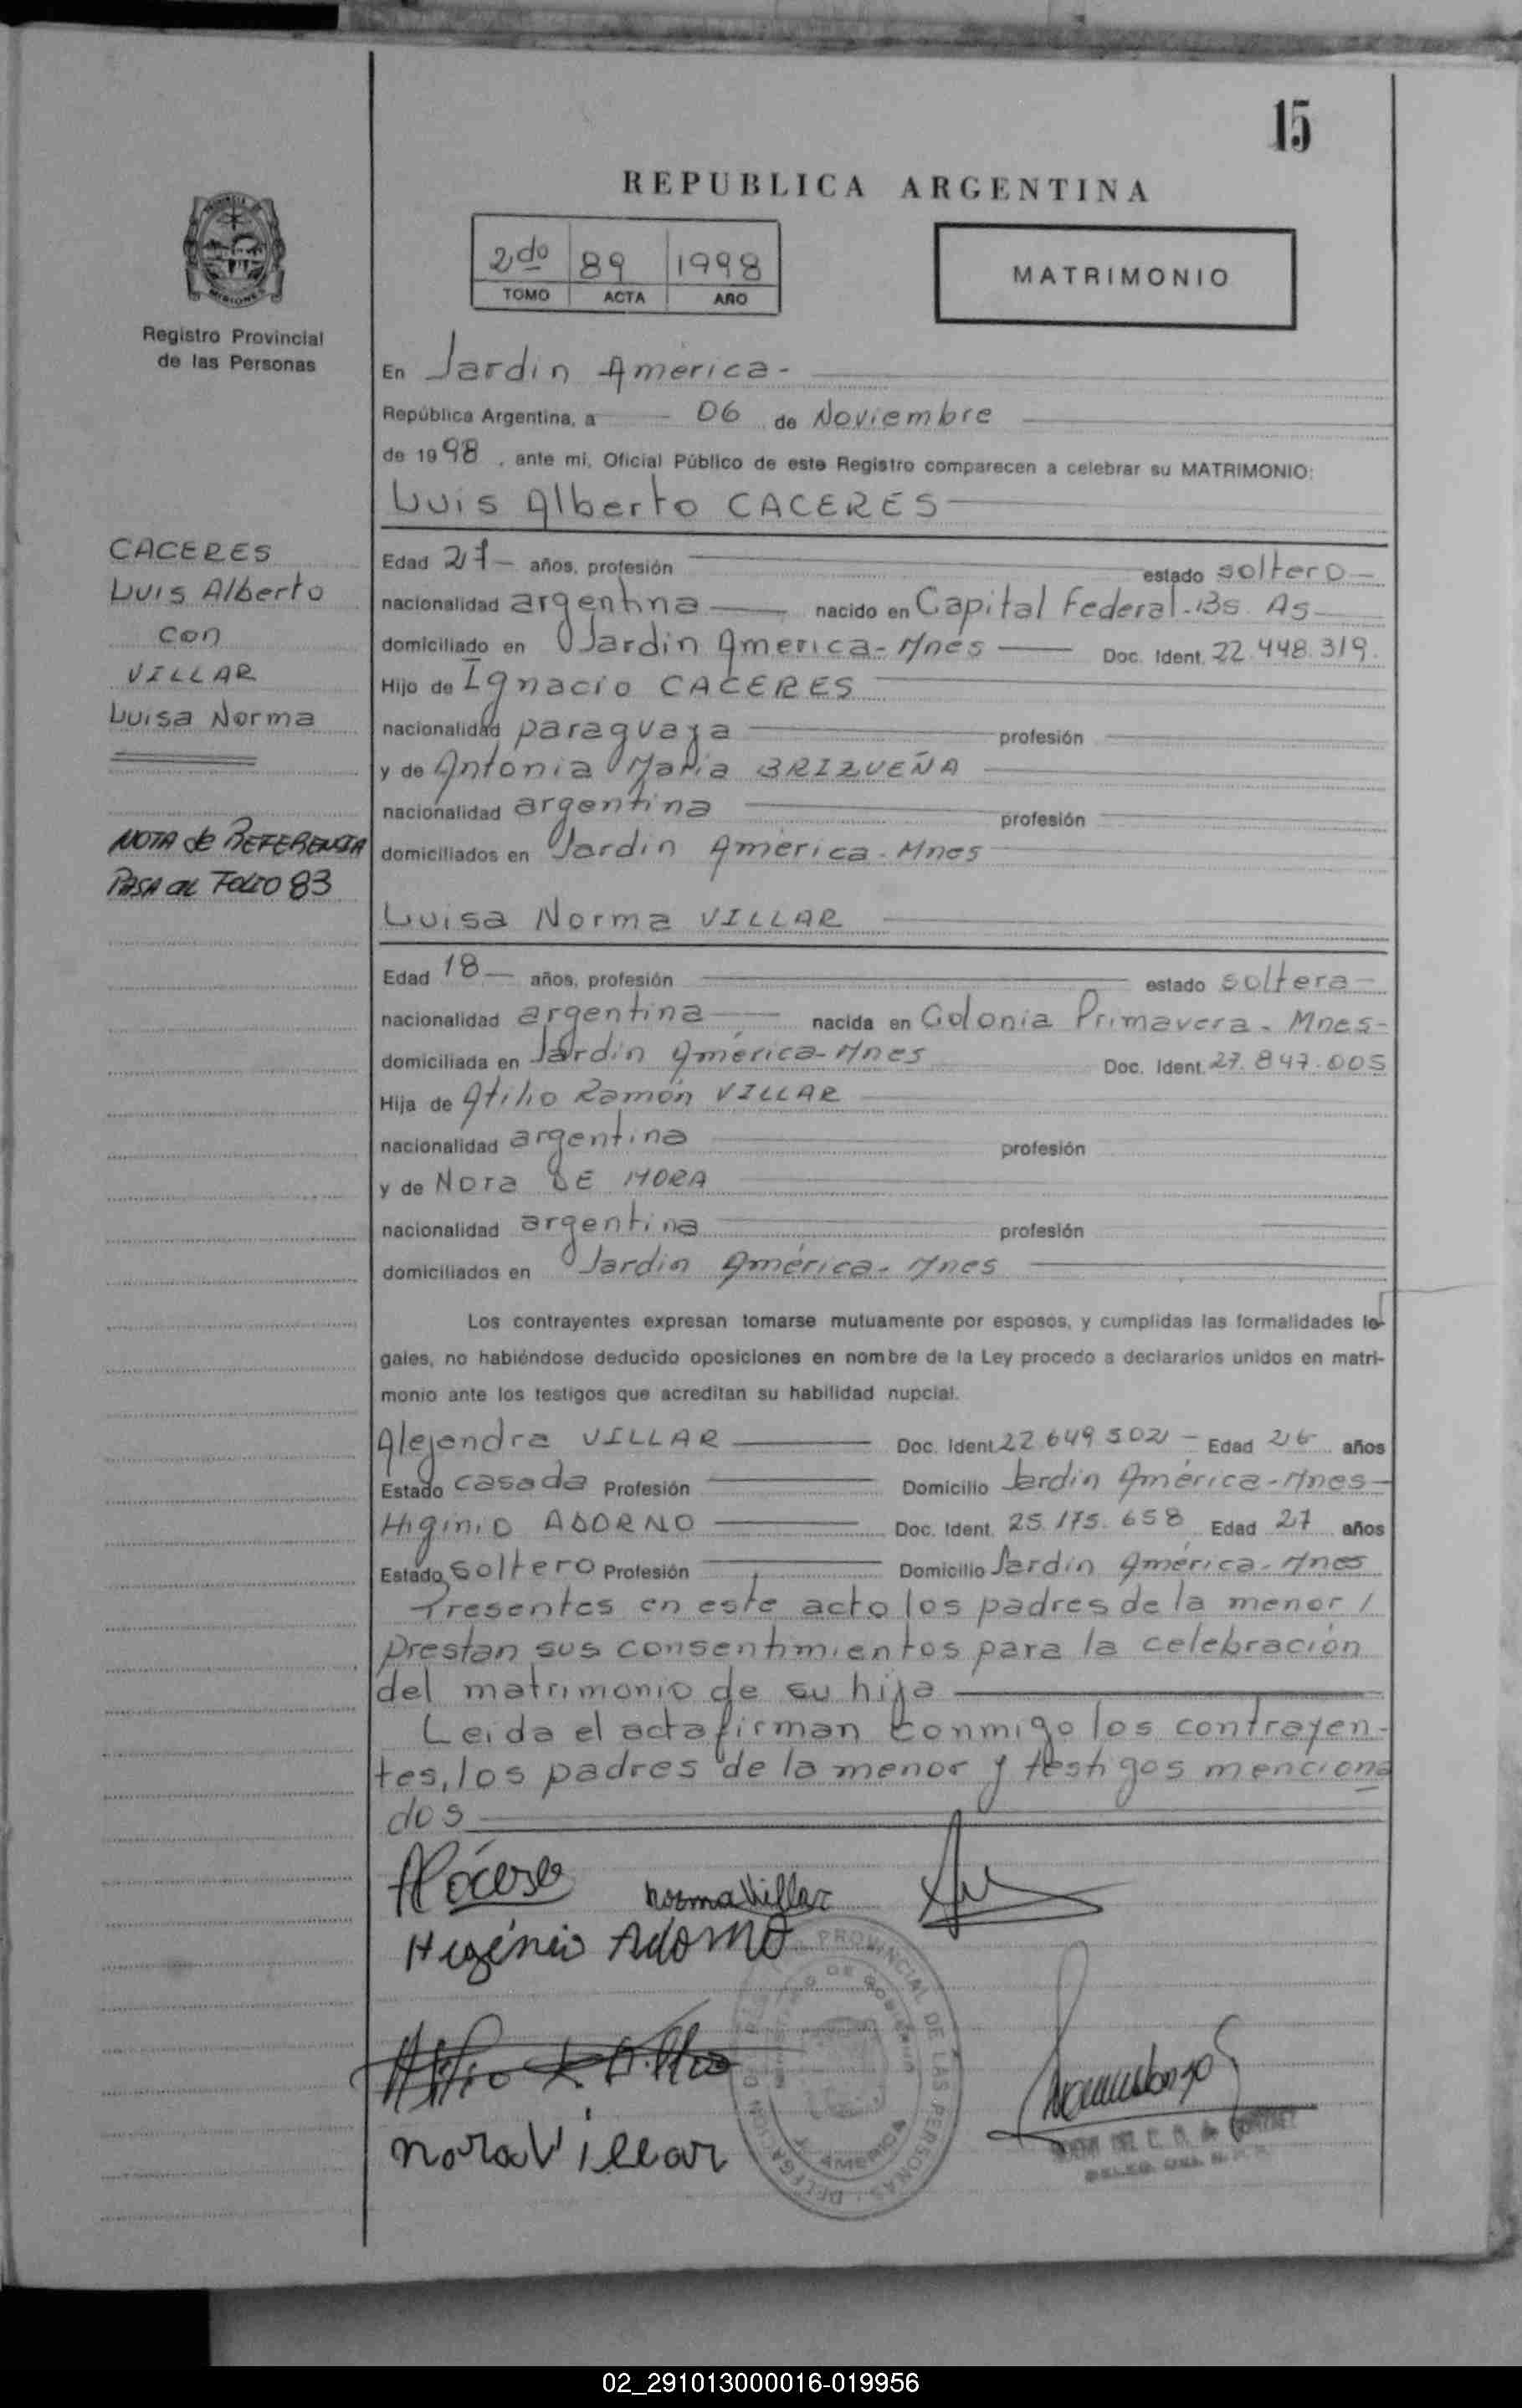 15
REPUBLICA ARGENTINA
2do 89 1998
TOMO ACTA AÑO
MATRIMONIO
MISIONES
Registro Provincial
de las Personas
En Jardin América-
República Argentina, a 06 de Noviembre
de 1998, ante mi, Oficial Público de este Registro comparecen a celebrar su MATRIMONIO:
Luis Alberto CACERES
CACERES
Luis Alberto
con
VILLAR
Luisa Norma
NOTA de REFERENCIA
PASA al FOLIO 83
Edad 27 años, profesión estado soltero
nacionalidad argentina nacido en Capital Federal-Bs. As
domiciliado en Jardin America-Mnes Doc. Ident. 22.448.319.
Hijo de Ignacio CACERES
nacionalidad paraguaya profesión
y de Antonia Maria BRIZUEÑA
nacionalidad argentina profesión
domiciliados en Jardin América-Mnes
Luisa Norma VILLAR
Edad 18 años, profesión estado soltera
nacionalidad argentina nacida en Colonia Primavera-Mnes-
domiciliada en Jardin América-Mnes Doc. Ident. 27.847.005
Hija de Atilio Ramón VILLAR
nacionalidad argentina profesión
y de Nora DE MORA
nacionalidad argentina profesión
domiciliados en Jardin América-Mnes
Los contrayentes expresan tomarse mutuamente por esposos, y cumplidas las formalidades le-
gales, no habiéndose deducido oposiciones en nombre de la Ley procedo a declararlos unidos en matri-
monio ante los testigos que acreditan su habilidad nupcial.
Alejandra VILLAR Doc. Ident. 22.649.502 - Edad 26 años
Estado casada Profesión Domicilio Jardin América-Mnes
Higinio ADORNO Doc. Ident. 25.175.658 Edad 27 años
Estado soltero Profesión Domicilio Jardin América-Mnes
Presentes en este acto los padres de la menor /
prestan sus consentimientos para la celebración
del matrimonio de su hija
Leida el acta firman conmigo los contrayen-
tes, los padres de la menor y testigos menciona
dos
norma Villar
Higinio Adorno
nora Villar
PROVINCIAL DE LAS PERSONAS
DELEGACION
J. AMERICA
02_291013000016-019956